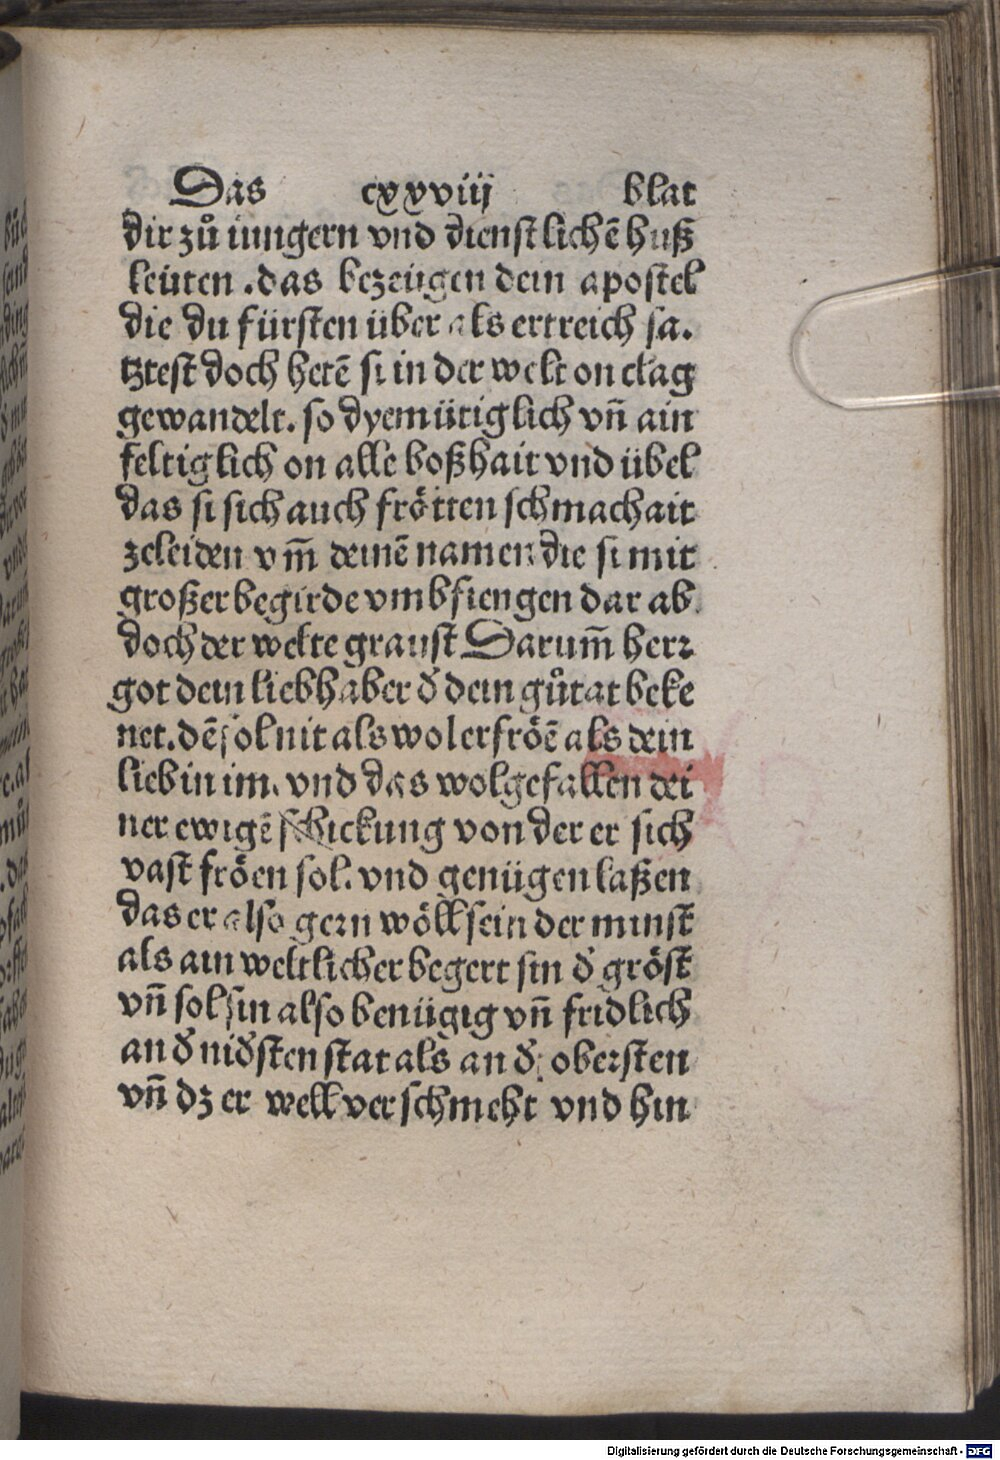 Das cxxviij blat
dir zů iungern vnd dienstlichē huß
leüten .das bezeügen dein apostel
die du fürsten über als ertreich sa.
tztest doch hetē si in der welt on clag
gewandelt. so dyemütiglich vn̄ ain
feltiglich on alle boßhait vnd übel
das si sich auch frötten schmachait
zeleiden vm̄ deinē namen die si mit
großer begirde vmbfiengen dar ab
doch der welte graust Darum̄ herꝛ
got dein liebhaber đ dein gůtat beke
net. dē sol nit als wol erfröē als dein
lieb in im. vnd das wolgefallen dei
ner ewigē schickung von der er sich
vast fröen sol. vnd genügen laßen
das er also gern wöll sein der minst
als ain weltlicher begert sin đ gröst
vn̄ sol sin also benügig vn̄ fridlich
an đ niđsten stat als an đ obersten
vn̄ dz er well verschmeht vnd hin
Digitalisierung gefördert durch die Deutsche Forschungsgemeinschaft - DFG